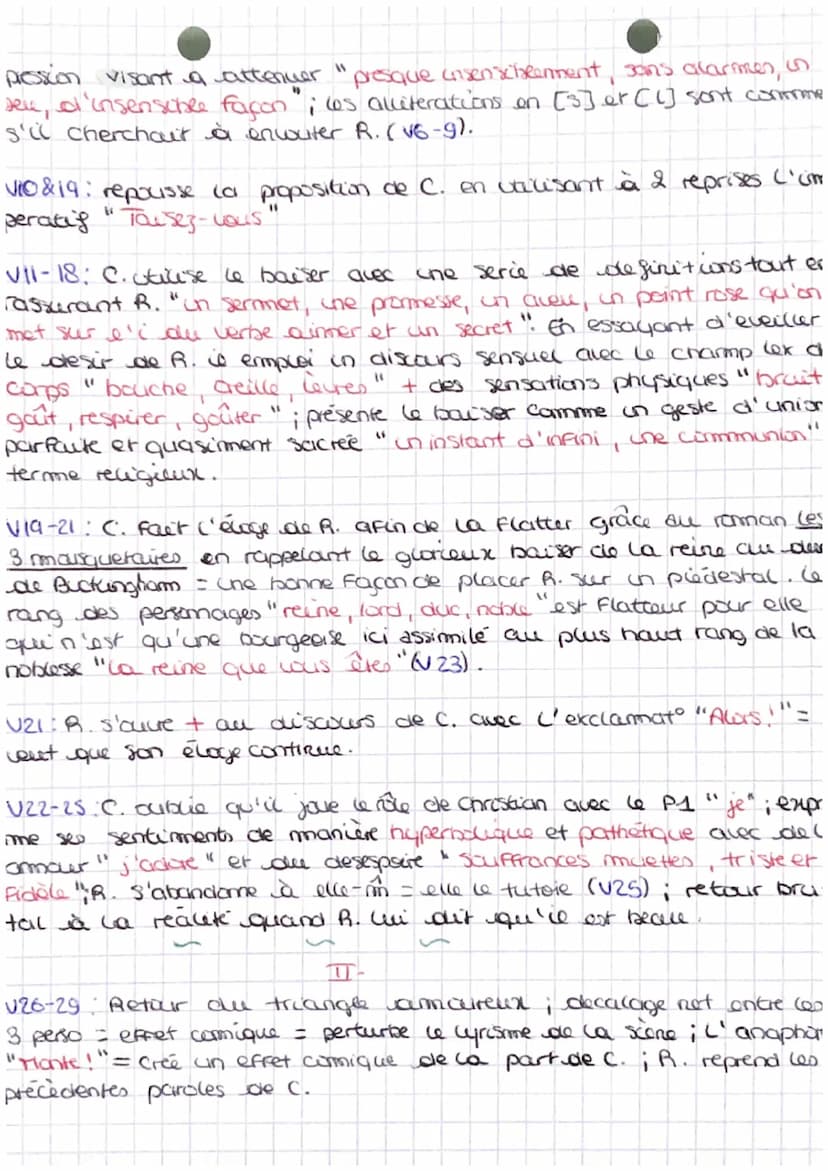 pression visant a attenuer "presque insensiblement, sans alarmes, un
peu, d'insensible façon"; les alliterations en [S] et [L] sont comme
s'il cherchait à envouter R. (V6-9).
V10&19: repousse la proposition de C. en utilisant à 2 reprises l'im
peratif "Taisez-vous"
V11-18: C. utilise le baiser avec une serie de definitions tout en
rassurant R. "un serment, une promesse, un aveu, un point rose qu'on
met sur l'i du verbe aimer et un secret". En essayant d'eveiller
le desir de R. il emploi un discours sensuel avec le champ lex d
corps "bouche, oreille, levres" + des sensations physiques "bruit
goût, respirer, goûter"; présente le baiser comme un geste d'union
parfaite et quasiment sacrée "un instant d'infini, une communion"
terme religieux.
V19-21: C. fait l'éloge de R. afin de la flatter grâce au roman Les
3 mousquetaires en rappelant le glorieux baiser de la reine au duc
de Buckingham = une bonne façon de placer R. sur un piédestal. Le
rang des personnages "reine, lord, duc, noble" est flatteur pour elle
qui n'est qu'une bourgeoise ici assimilé au plus haut rang de la
noblesse "la reine que vous êtes" (V23).
V21: R. s'ouvre + au discours de C. avec l'exclamat° "Alors!" =
veut que son éloge continue.
V22-25: C. oublie qu'il joue le rôle de Christian avec le P1 "je"; expr
ime ses sentiments de manière hyperbolique et pathétique avec de l
amour "j'adore" et du desespoire "souffrances muettes, triste et
fidèle"; R. s'abandonne à elle-m̂ = elle le tutoie (V25); retour bru
tal à la réalité quand R. lui dit qu'il est beau.
II-
V26-29: Retour du triangle amoureux; decalage net entre les
3 perso = effet comique = perturbe le lyrisme de la scène; l'anaphor
"Monte!" = créé un effet comique de la part de C.; R. reprend les
précédentes paroles de C.